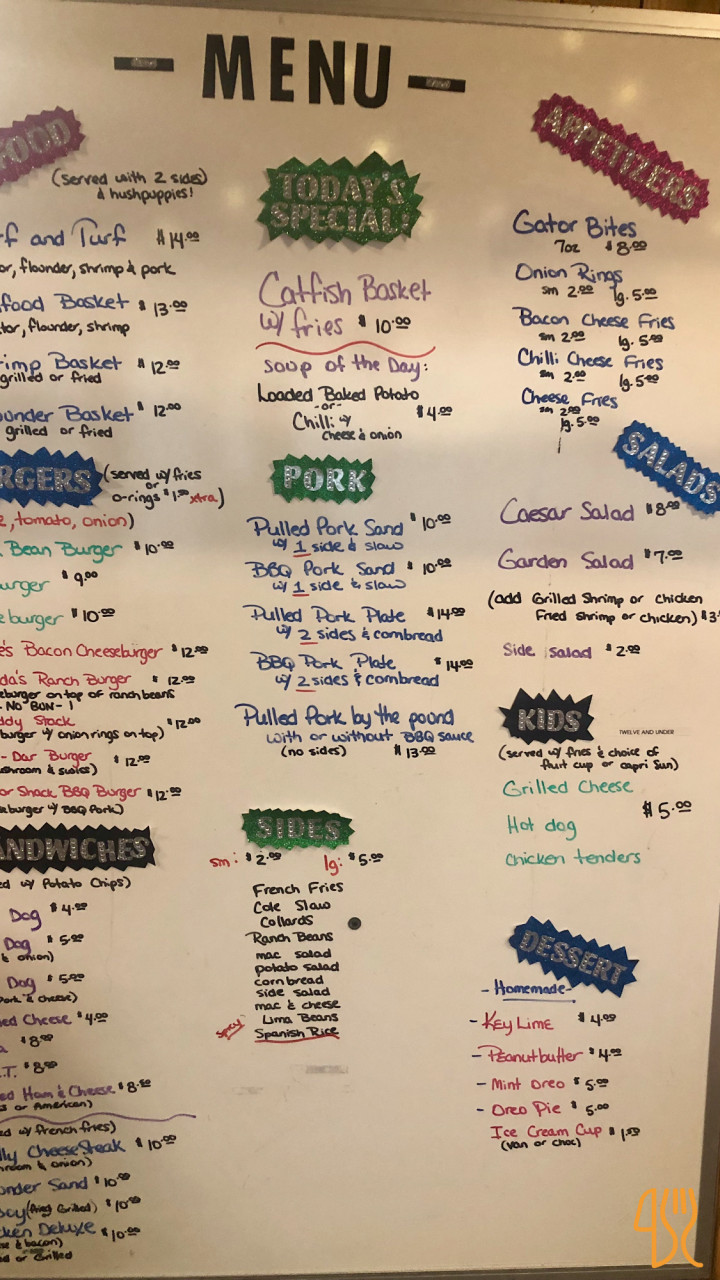 MENU
FOOD
(served with 2 sides)
& hushpuppies!
f and Turf $14.00
or, flounder, shrimp & pork
food Basket $13.00
tor, flounder, shrimp
rimp Basket $12.00
grilled or fried
ounder Basket $12.00
grilled or fried
RGERS (served w/ fries
or
o-rings $1.50 xtra)
e, tomato, onion)
Bean Burger $10.00
urger $9.00
eburger $10.00
e's Bacon Cheeseburger $12.00
da's Ranch Burger $12.00
eburger on top of ranch beans
- NO BUN - !
ddy Stack $12.00
burger w/ onion rings on top)
- Dar Burger $12.00
shroom & swiss)
or Shack BBQ Burger $12.00
eburger w/ BBQ Pork)
ANDWICHES
ed w/ Potato Chips)
Dog $4.00
Dog $5.00
& onion)
Dog $5.00
Pork & cheese)
ed Cheese $4.00
a $8.00
.T. $8.00
ed Ham & Cheese $8.50
s or American)
ed w/ french fries)
lly CheeseSteak $10.00
hroom & onion)
under Sand $10.00
boy (fried Grilled) $10.00
cken Deluxe $10.00
se & bacon)
d or Grilled
TODAY'S
SPECIAL!
Catfish Basket
w/ fries $10.00
Soup of the Day:
Loaded Baked Potato
-or-
Chilli w/ $4.00
cheese & onion
PORK
Pulled Pork Sand $10.00
w/ 1 side & slaw
BBQ Pork Sand $10.00
w/ 1 side & slaw
Pulled Pork Plate $14.00
w/ 2 sides & cornbread
BBQ Pork Plate $14.00
w/ 2 sides & cornbread
Pulled Pork by the pound
with or without BBQ sauce
(no sides) $13.00
SIDES
sm: $2.00 lg: $5.00
French Fries
Cole Slaw
Collards
Ranch Beans
mac salad
potato salad
cornbread
side salad
mac & cheese
Lima Beans
spicy Spanish Rice
APPETIZERS
Gator Bites
7oz $8.00
Onion Rings
sm 2.00 lg. 5.00
Bacon Cheese Fries
sm 2.00 lg. 5.00
Chilli Cheese Fries
sm 2.00 lg. 5.00
Cheese Fries
sm 2.00
lg. 5.00
SALADS
Caesar Salad $8.00
Garden Salad $7.00
(add Grilled Shrimp or Chicken
Fried Shrimp or chicken) $3
Side Salad $2.00
KIDS
TWELVE AND UNDER
(served w/ fries & choice of
fruit cup or capri sun)
Grilled Cheese
$5.00
Hot dog
chicken tenders
DESSERT
- Homemade -
- Key Lime $4.00
- Peanutbutter $4.00
- Mint Oreo $5.00
- Oreo Pie $5.00
Ice Cream Cup $1.50
(van or choc)